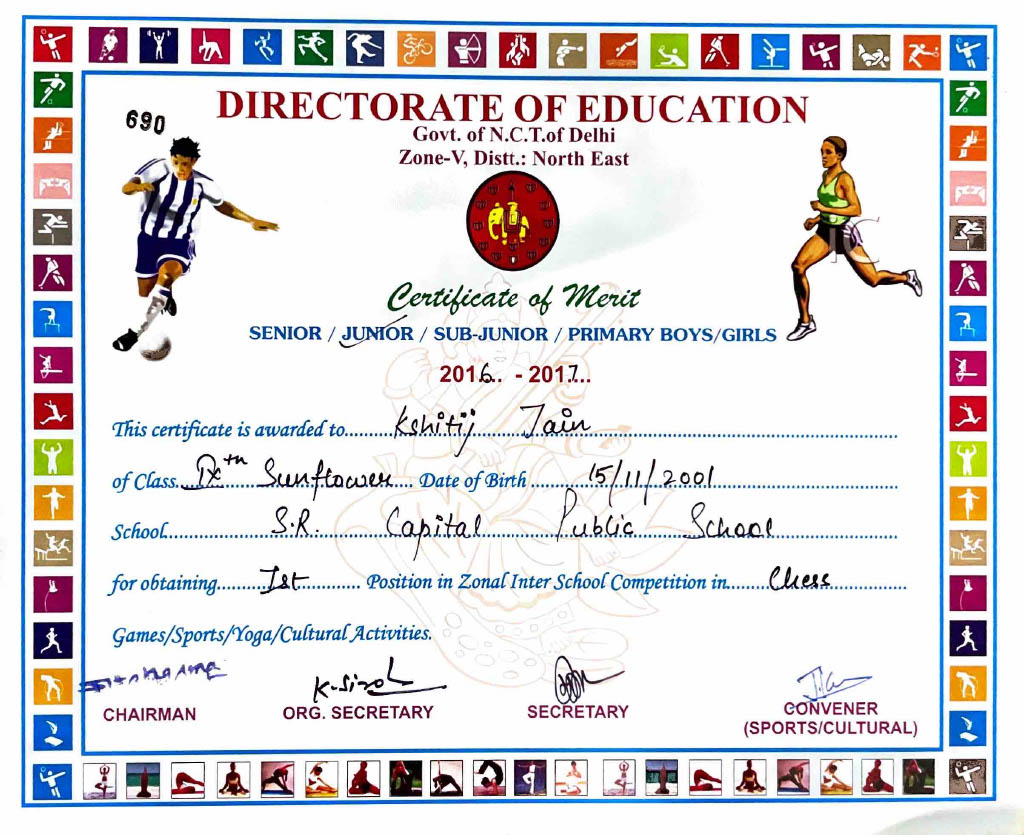 690
DIRECTORATE OF EDUCATION
Govt. of N.C.T.of Delhi
Zone-V, Distt.: North East
Certificate of Merit
SENIOR / JUNIOR / SUB-JUNIOR / PRIMARY BOYS/GIRLS
2016.. - 2017...
This certificate is awarded to.....Kshitij Jain
of Class..IXth Sunflower.... Date of Birth ..........15/11/2001
School......S.R. Capital Public School
for obtaining........Ist.......... Position in Zonal Inter School Competition in.......Chess
Games/Sports/Yoga/Cultural Activities.
CHAIRMAN
ORG. SECRETARY
SECRETARY
CONVENER
(SPORTS/CULTURAL)